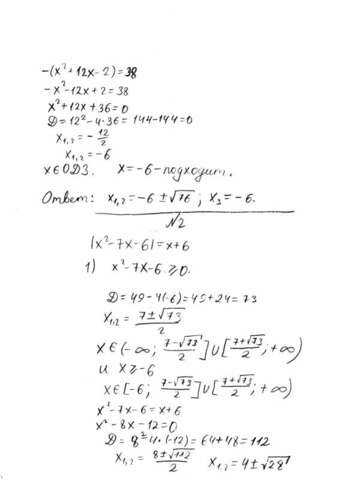 -(x²+12x-2)=38
-x²-12x+2=38
x²+12x+36=0
D=12²-4·36=144-144=0
x₁,₂=-12/2
x₁,₂=-6
x∈ОДЗ. x=-6-подходит.
Ответ: x₁,₂=-6±√76; x₃=-6.
N2
|x²-7x-6|=x+6
1) x²-7x-6≥0.
D=49-4(-6)=49+24=73
x₁,₂=(7±√73)/2
x∈(-∞; (7-√73)/2]∪[(7+√73)/2; +∞)
и x≥-6
x∈[-6; (7-√73)/2]∪[(7+√73)/2; +∞)
x²-7x-6=x+6
x²-8x-12=0
D=8²-4·(-12)=64+48=112
x₁,₂=(8±√112)/2 x₁,₂=4±√28